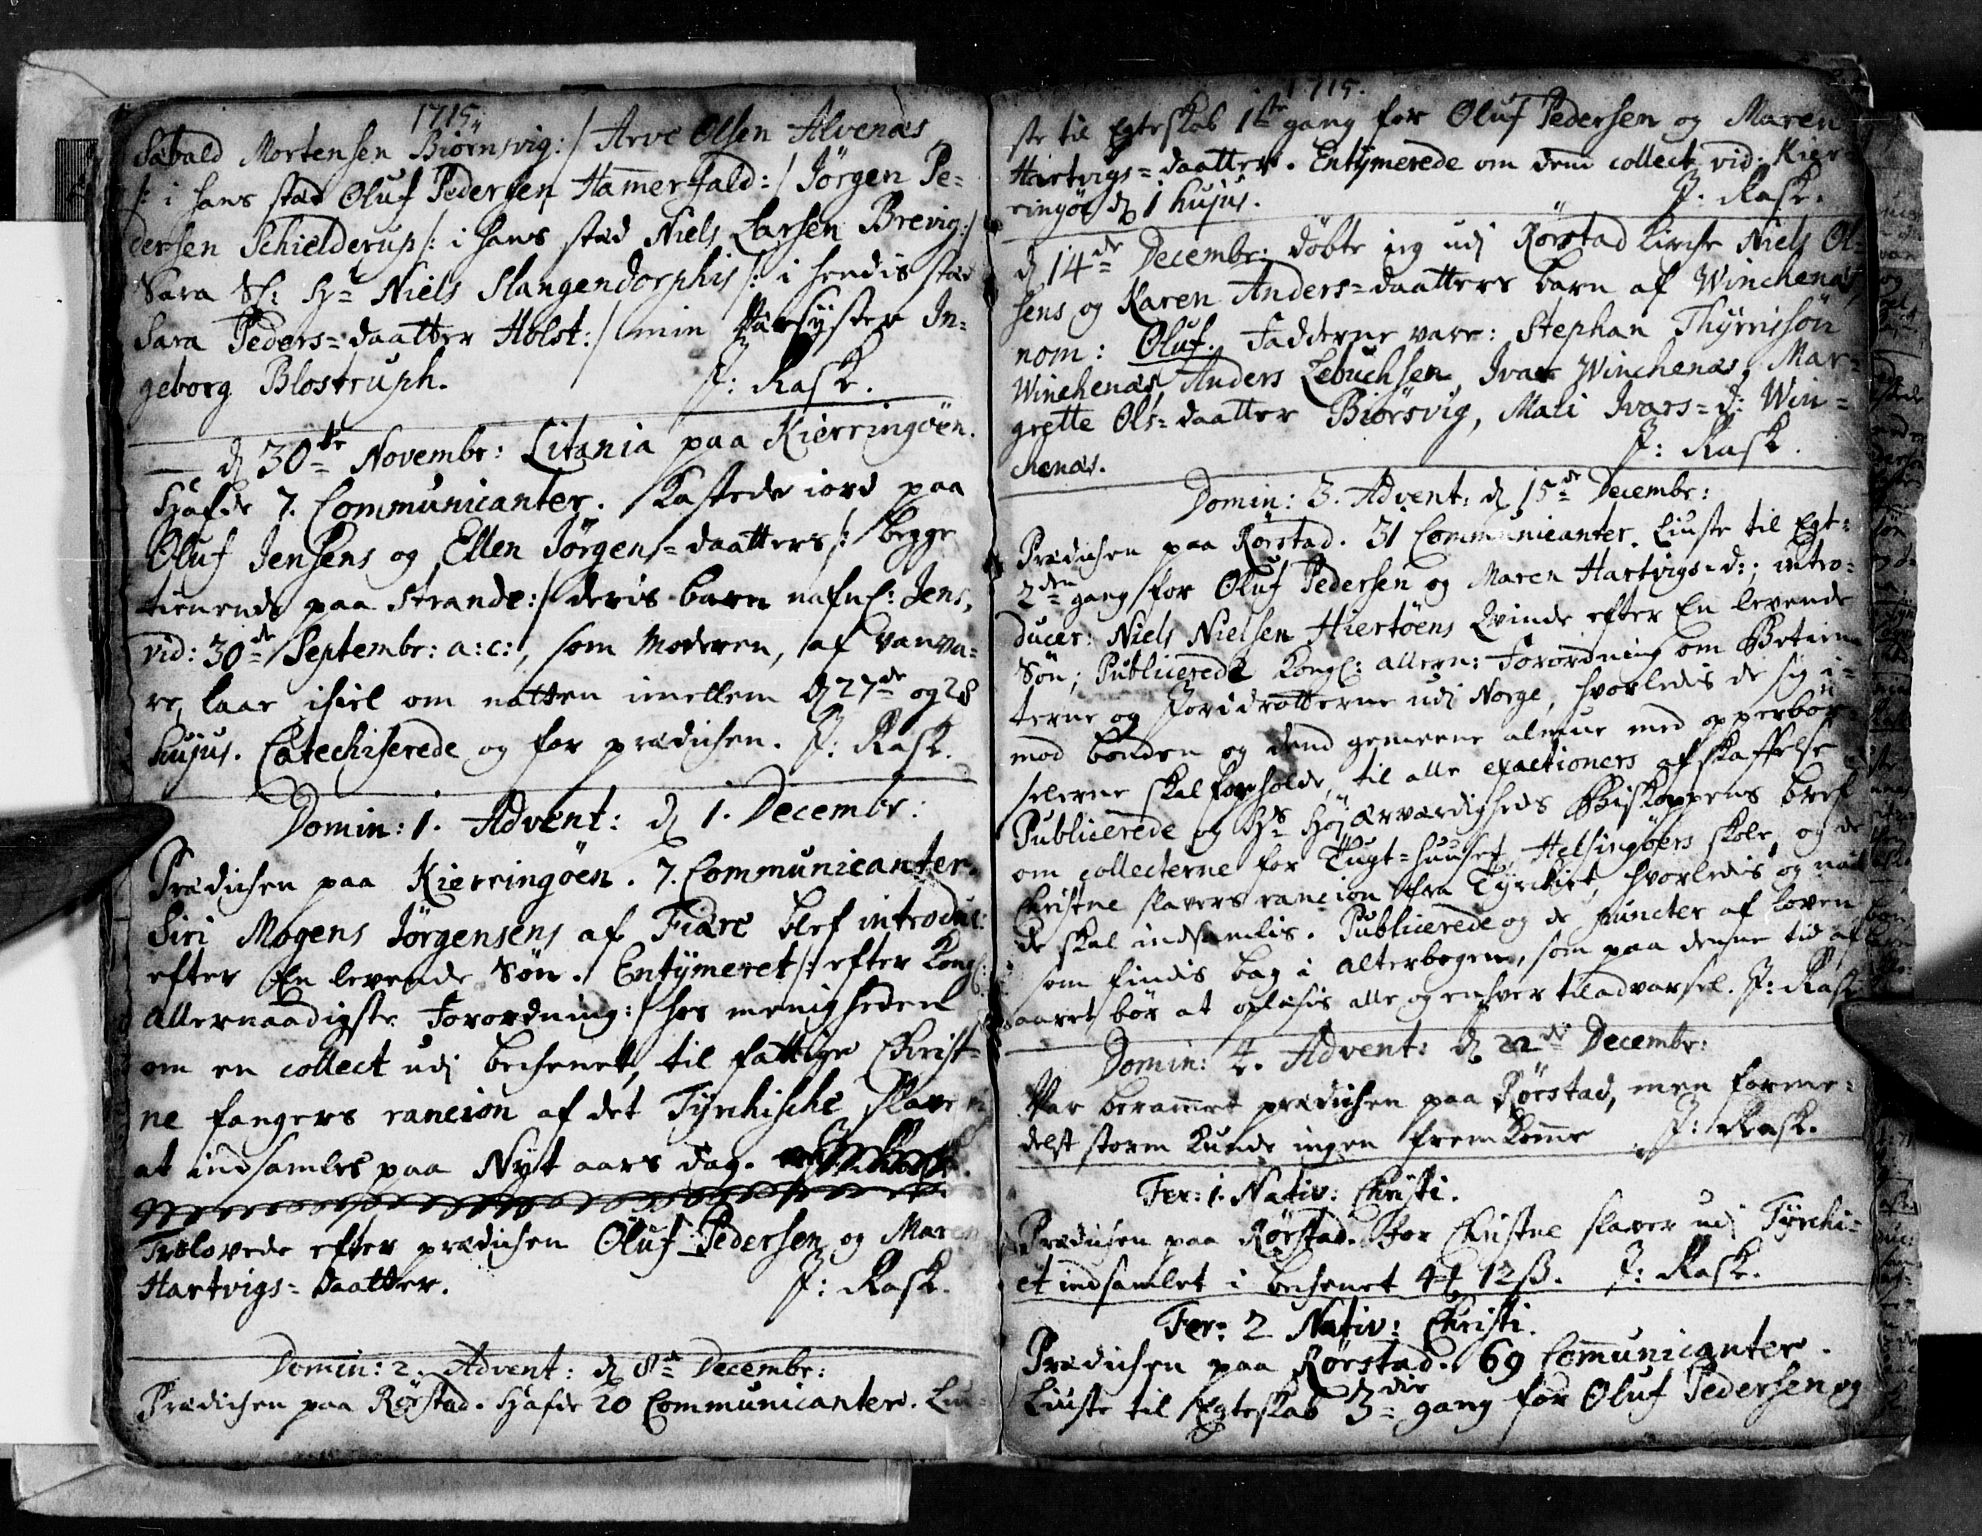 1715.
Sabald Mortensen Biörnsvig:/ Arve Olsen Alvenæs
/: i hans stæd Oluf Pedersen Hammerfald:/ Jörgen Pe=
dersen Schielderup/: i hans stæd Niels Larsen Brevig:/
Sara Sl: Hr Niels Slangendorphis /: i hendis stæd
Sara Peders=daatter Holst:/ min Syster In=
geborg Blostruph. J: Rask.
d 30te Novembr: Litania paa Kierringöen.
Hafde 7. Communicanter. Kastede iord paa
Oluf Jensens og Ellen Jörgens=daatters /: begge
tienende paa Strande:/ deris barn nafnl: Jens,
vid: 30de Septembr: a:c:, som Moderen, af vanva=
re, laae ihiel om natten imellem d 27de og 28
hujus. Catechiserede og for prædichen. J: Rask.
Domin: 1. Advent: d 1. Decembr:
Prædichen paa Kierringöen. 7. Communicanter.
Siri Mogens Jörgensens af Fiære blef introduc:
efter En levende Sön. Entÿmeret /: efter Kongl:
Allernaadigste Forordning:/ hos menigheden
om en collect udj bechenet, til fattige Christ=
ne fangers rancion af det Tÿrchische slaveri
at indsamles paa Nÿt aars dag.
Trolovede efter prædichen Oluf Pedersen og Maren
Hartvigs=daatter. J: Rask.
Domin: 2. Advent: d 8de Decembr:
Prædichen paa Rörstad. Hafde 20 Communicanter. Liu=
1715.
ste til Egteskab 1ste gang for Oluf Pedersen og Maren
Hartvigs=daatter. Entÿmerede om dend collect vid: Kier=
ringöe d 1 hujus. J: Rask.
d 14de Decembr: döbte ieg udj Rörstad Kirche Niels Ol=
sens og Karen Anders=daatters barn af Winchenæs,
nom: Oluf. Fadderne vare: Stephan Thÿrrissön
Winchenæs, Anders Lebuchsen, Ivar Winchenæs, Mar=
grette Ols=daatter Biörsvig, Mali Ivars=d: Win=
chenæs. J: Rask.
Domin: 3. Advent: d 15de Decembr:
Prædichen paa Rörstad. 31 Communicanter. Liuste til Egt:
2den gang for Oluf Pedersen og Maren Hartvigs=d:; intro=
ducer: Niels Nielsen Hiertöens Qvinde efter En levende
Sön; Publicerede Kongl: allern: Forordning om Betien=
terne og Foridrætterne udj Norge, hvorledis de sig i=
mod bonden og dend gemeene almue med opperbör=
selerne skal forholde, til alle exactioners afskaffelse
Publicerede og Hs Höj Ærværdigheds Biskoppens bref
om collecterne for Tugt=huuset, Helsingöers skole, og de
Christne slavers rancion fra Tÿrchiet, hvorledis og naar
de skal indsamlis. Publicerede og de puncter af loven
som findis bag i alterbogen, som paa denne tid af
aaret bör at oplæsis alle og enhver til advarsel. J: Rask
Domin: 4. Advent: d 22de Decembr:
Var beramet prædichen paa Rörstad, men forme=
delst storm kunde ingen fremkomme J: Rask.
Fer: 1. Nativ: Christi.
Prædichen paa Rörstad. For Christne slaver udj Tÿrchi=
et indsamlet i bechenet 4 12ß. J: Rask.
Fer: 2 Nativ: Christi.
Prædichen paa Rörstad. 69 Comunicanter.
Liuste til Egteskab 3die gang for Oluf Pedersen og